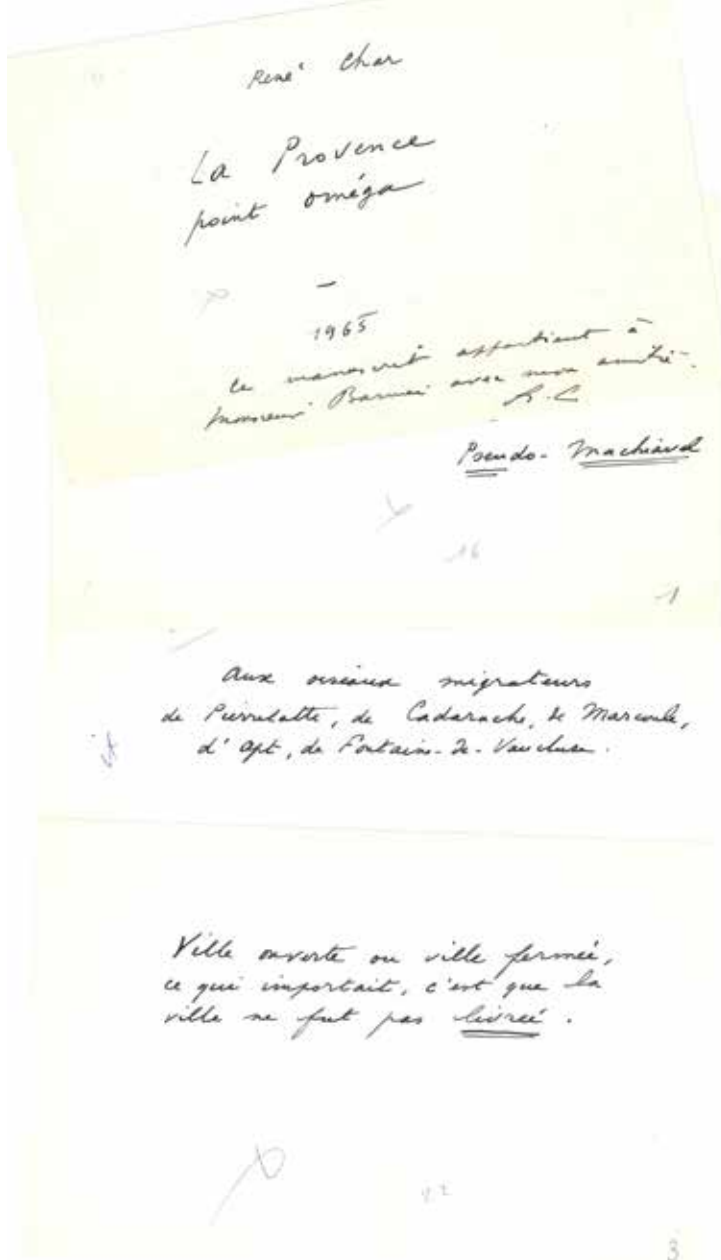 René Char
La Provence
point oméga
—
1965
Ce manuscrit appartient à
Monsieur avec mon amitié.
R. C
Pseudo-Machiavel
16
1
Aux oiseaux migrateurs
de Pierrelatte, de Cadarache, de Marcoule,
d'Apt, de Fontaine-de-Vaucluse.
Ville ouverte ou ville fermée,
ce qui importait, c'est que la
ville ne fut pas livrée.
22
3